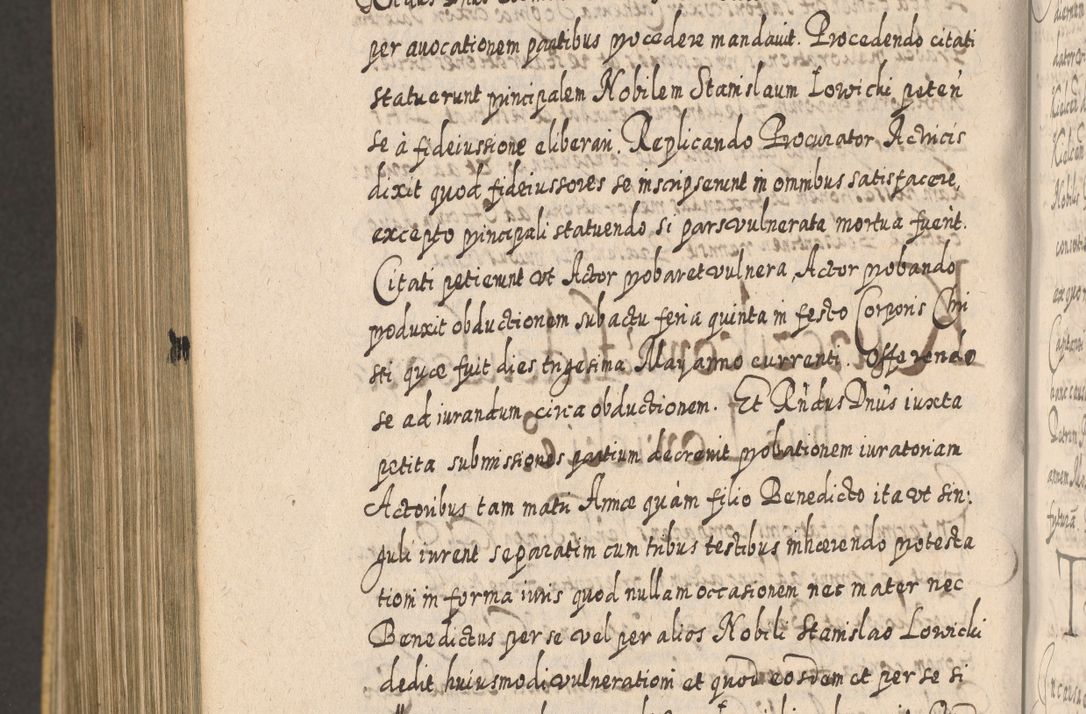 per auocationem partibus procedere mandauit. Procedendo citati
statuerunt principalem Nobilem Stanislaum Łowicki peten
se à fideiussione eliberari, Replicando Procurator Actricis
dixit quod fideiussores se inscripserunt in omnibus satisfacere,
excepto principali statuendo si pars vulnerata mortua fuerit.
Citati petierunt vt Actor probaret vulnera, Actor probando
produxit obductionem sub actu feria quinta in festo Corporis Chri
sti quæ fuit dies trigesima May anno currenti. Offerendo
se ad iurandum circa obductionem. Et Rńdus Dnús iuxta
petita submissiones partium decreuit probationem iuratoriam
Actoribus tam matri Annæ quàm filio Benedicto ita vt sin:
guli iurent separatim cum tribus testibus inhærendo protesta
tioni in forma iuris quod nullam occasionem nec mater nec
Benedictus per se vel per alios Nobili Stanislao Łowicki
dedit huiusmodi vulnerationi et quod eosdem et per se si